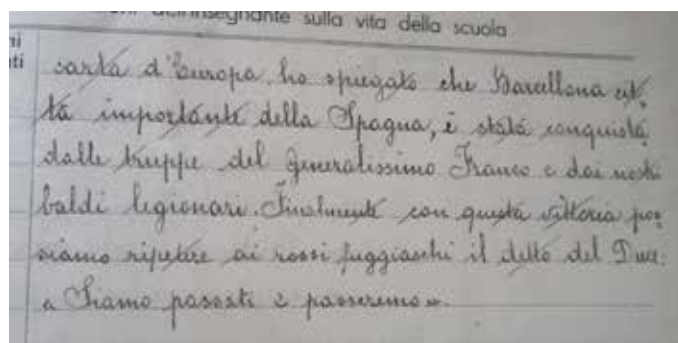 dell'insegnante sulla vita della scuola
carta d'Europa, ho spiegato che Barcellona cit=
tà importante della Spagna, è stata conquista
dalle truppe del generalissimo Franco e dai nostri
baldi legionari. Finalmente con questa vittoria pos
siamo ripetere ai rossi fuggiaschi il detto del Duce:
« Siamo passati e passeremo ».